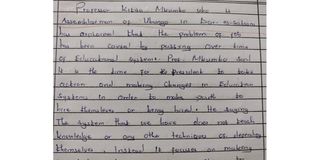 Professor Kitila Mkumbo who is
Assemblerman of Ubungo in Dar-es-salaam
has exclaimed that the problem of job
has been caused by passing over time
of Educational system. Prof. Mkumbo said
it is the time for the president to take
action and making Changes in Education
systems in order to make youth to
hire themselves or being hired. He saying
The system that we have does not teach
knowledge or any other techniques of depending
themselves. Instead it focuses on making